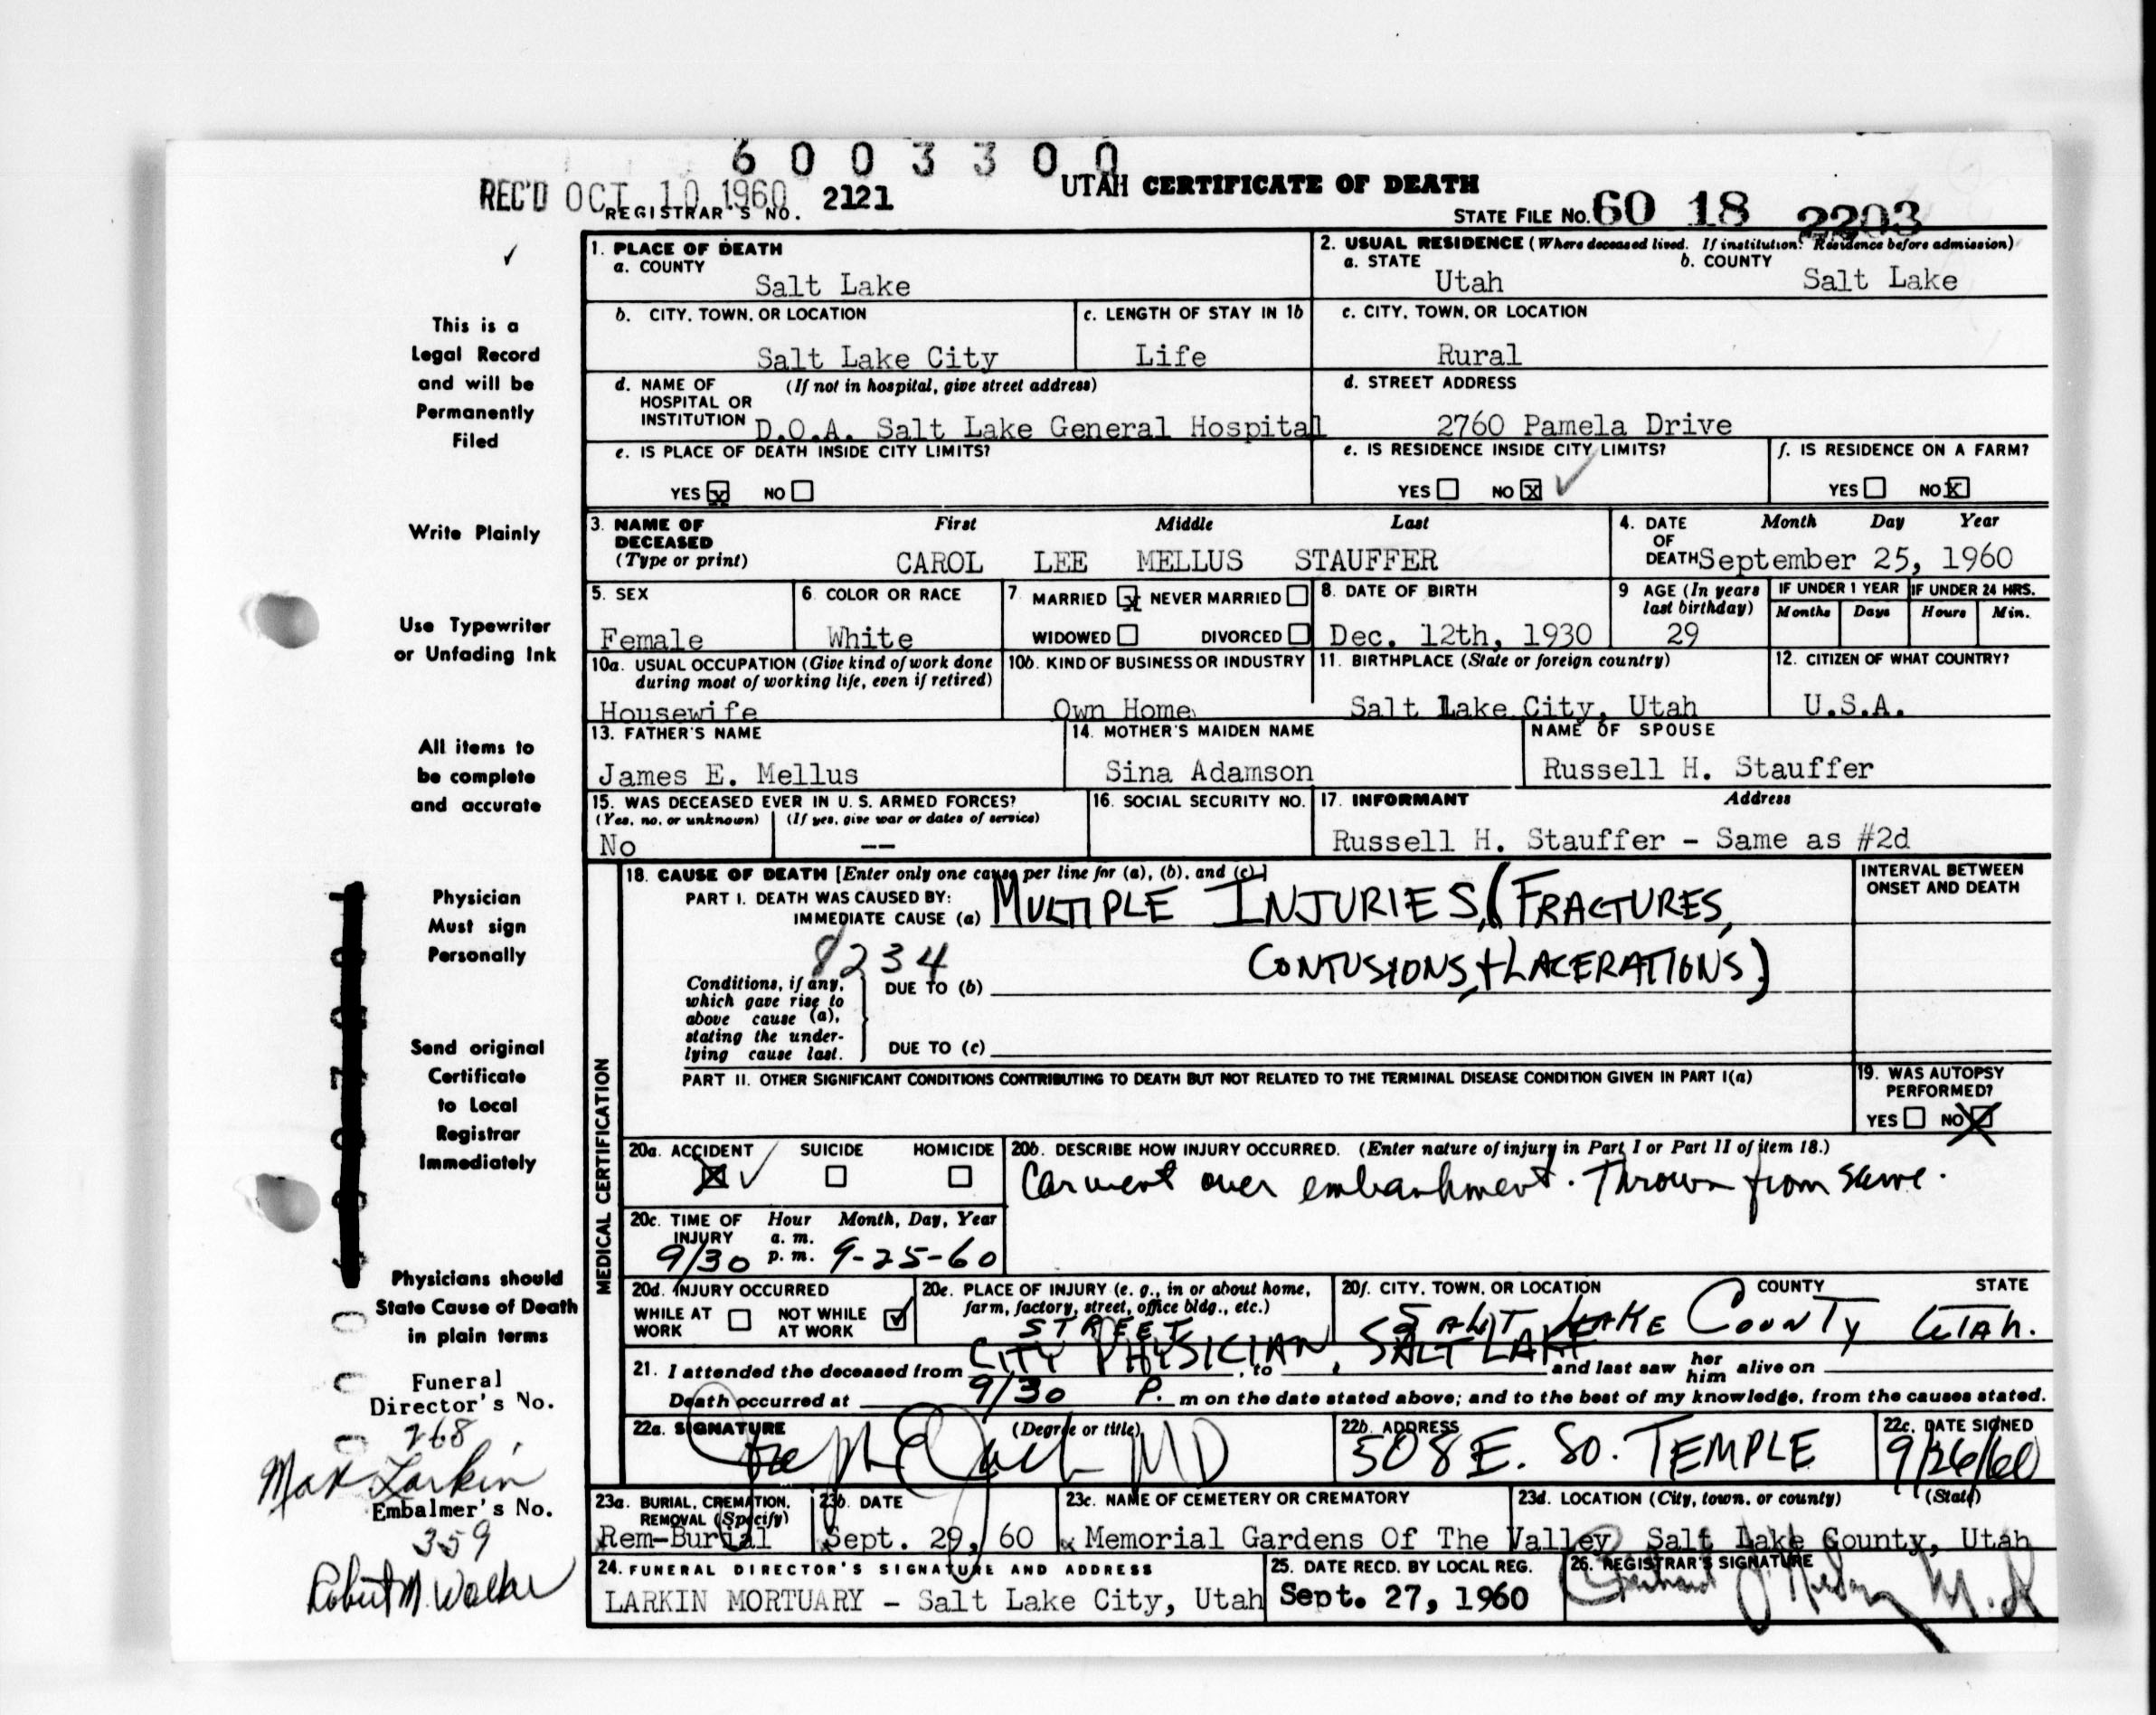 6 0 0 3 3 0 0
REC'D OCT 10 1960
REGISTRAR'S NO. 2121
UTAH CERTIFICATE OF DEATH
STATE FILE NO. 60 18 2203
This is a
Legal Record
and will be
Permanently
Filed
Write Plainly
Use Typewriter
or Unfading Ink
All items to
be complete
and accurate
Physician
Must sign
Personally
Send original
Certificate
to Local
Registrar
Immediately
Physicians should
State Cause of Death
in plain terms
Funeral
Director's No.
268
Max Larkin
Embalmer's No.
359
Robert M. Walker
1. PLACE OF DEATH
a. COUNTY
Salt Lake
2. USUAL RESIDENCE (Where deceased lived. If institution: Residence before admission)
a. STATE b. COUNTY
Utah Salt Lake
b. CITY, TOWN, OR LOCATION
Salt Lake City
c. LENGTH OF STAY IN 1b
Life
c. CITY, TOWN, OR LOCATION
Rural
d. NAME OF (If not in hospital, give street address)
HOSPITAL OR
INSTITUTION D.O.A. Salt Lake General Hospital
d. STREET ADDRESS
2760 Pamela Drive
e. IS PLACE OF DEATH INSIDE CITY LIMITS?
YES x NO
e. IS RESIDENCE INSIDE CITY LIMITS?
YES NO x
f. IS RESIDENCE ON A FARM?
YES NO x
3. NAME OF First Middle Last
DECEASED
(Type or print) CAROL LEE MELLUS STAUFFER
4. DATE Month Day Year
OF
DEATH September 25, 1960
5. SEX
Female
6. COLOR OR RACE
White
7. MARRIED x NEVER MARRIED
WIDOWED DIVORCED
8. DATE OF BIRTH
Dec. 12th, 1930
9 AGE (In years
last birthday)
29
IF UNDER 1 YEAR IF UNDER 24 HRS.
Months Days Hours Min.
10a. USUAL OCCUPATION (Give kind of work done
during most of working life, even if retired)
Housewife
10b. KIND OF BUSINESS OR INDUSTRY
Own Home
11. BIRTHPLACE (State or foreign country)
Salt Lake City, Utah
12. CITIZEN OF WHAT COUNTRY?
U.S.A.
13. FATHER'S NAME
James E. Mellus
14. MOTHER'S MAIDEN NAME
Sina Adamson
NAME OF SPOUSE
Russell H. Stauffer
15. WAS DECEASED EVER IN U. S. ARMED FORCES?
(Yes, no, or unknown) (If yes, give war or dates of service)
No --
16. SOCIAL SECURITY NO.
17. INFORMANT Address
Russell H. Stauffer - Same as #2d
MEDICAL CERTIFICATION
18. CAUSE OF DEATH [Enter only one cause per line for (a), (b), and (c)]
PART I. DEATH WAS CAUSED BY:
IMMEDIATE CAUSE (a) MULTIPLE INJURIES, (FRACTURES,
8234 CONTUSIONS, + LACERATIONS)
Conditions, if any,
which gave rise to
above cause (a),
stating the under-
lying cause last.
DUE TO (b)
DUE TO (c)
INTERVAL BETWEEN
ONSET AND DEATH
PART II. OTHER SIGNIFICANT CONDITIONS CONTRIBUTING TO DEATH BUT NOT RELATED TO THE TERMINAL DISEASE CONDITION GIVEN IN PART I(a)
19. WAS AUTOPSY
PERFORMED?
YES NO X
20a. ACCIDENT SUICIDE HOMICIDE
20b. DESCRIBE HOW INJURY OCCURRED. (Enter nature of injury in Part I or Part II of item 18.)
Car went over embankment. Thrown from same.
20c. TIME OF Hour Month, Day, Year
INJURY a. m.
9/30 p. m. 9-25-60
20d. INJURY OCCURRED
WHILE AT NOT WHILE
WORK AT WORK
20e. PLACE OF INJURY (e. g., in or about home,
farm, factory, street, office bldg., etc.)
STREET
20f. CITY, TOWN, OR LOCATION COUNTY STATE
SALT LAKE COUNTY UTAH.
CITY PHYSICIAN, SALT LAKE
21. I attended the deceased from , to and last saw her him alive on
Death occurred at 9/30 P. m on the date stated above; and to the best of my knowledge, from the causes stated.
22a. SIGNATURE (Degree or title)
MD
22b. ADDRESS
508 E. SO. TEMPLE
22c. DATE SIGNED
9/26/60
23a. BURIAL, CREMATION,
REMOVAL (Specify)
Rem-Burial
23b. DATE
Sept. 29, 60
23c. NAME OF CEMETERY OR CREMATORY
Memorial Gardens Of The Valley
23d. LOCATION (City, town, or county) (State)
Salt Lake County, Utah
24. FUNERAL DIRECTOR'S SIGNATURE AND ADDRESS
LARKIN MORTUARY - Salt Lake City, Utah
25. DATE RECD. BY LOCAL REG.
Sept. 27, 1960
26. REGISTRAR'S SIGNATURE